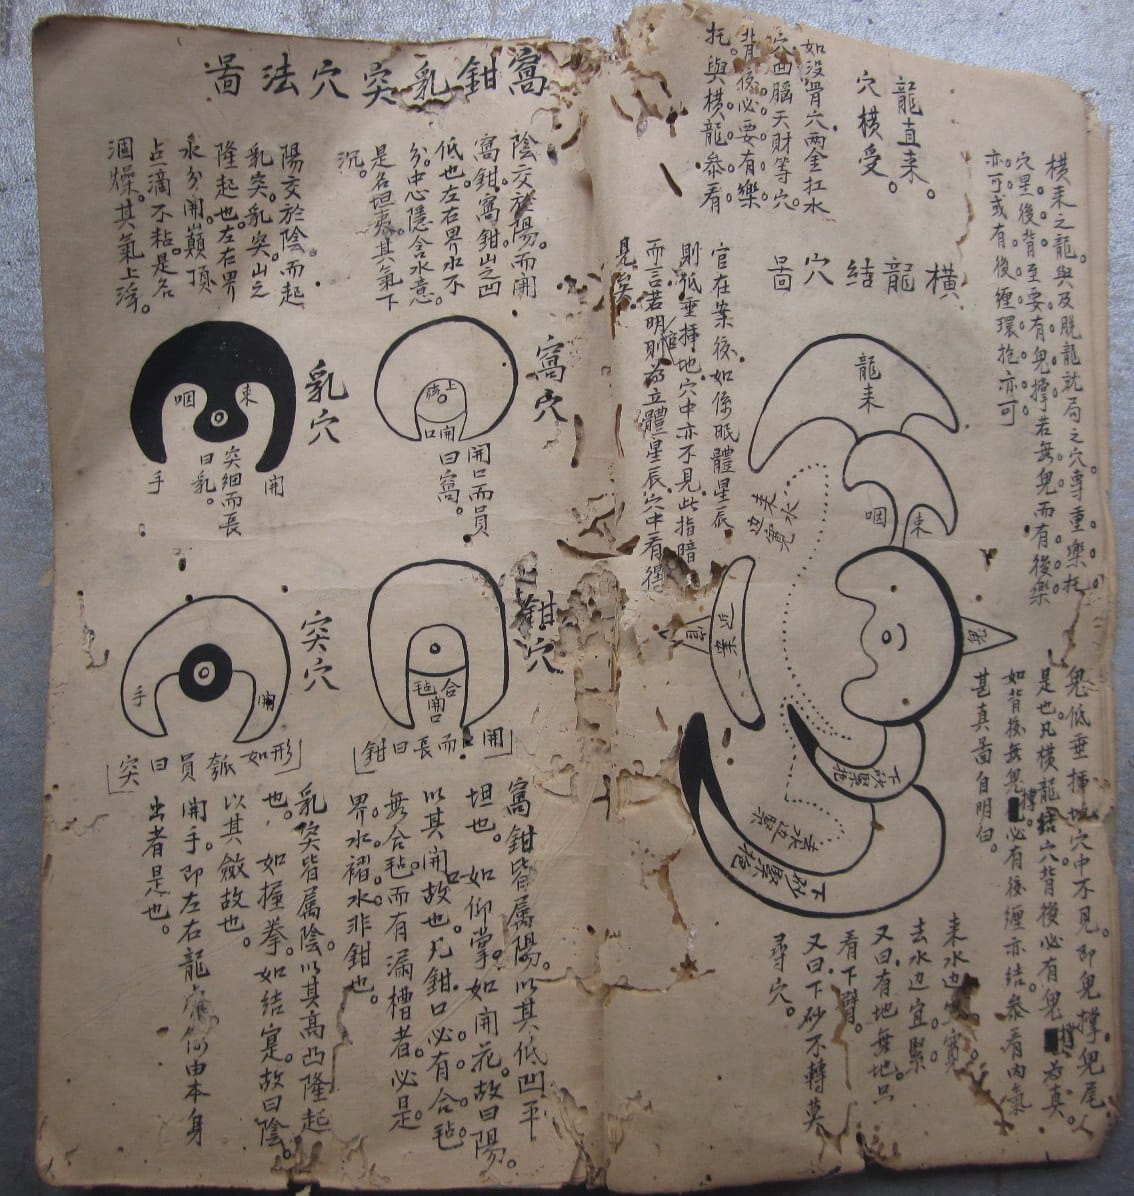 龍直来。
穴橫受。
如没骨穴两金扛水
穴凹腦天財等穴。
背後必要有樂
托。與橫龍叅看。
橫龍結穴啚
橫来之龍與及脱龍就局之穴專重樂托
穴星後背至要有鬼撑若無鬼而有後樂
亦可或有後纏環抱亦可
官在案後。如係眠體星辰
則低垂揷地穴中亦不見此指暗
而言若明則為立體星辰穴中看得
見矣
龍来
束
咽
鬼
来水
边寬
近案
官
下砂緊抱
去水边緊
下砂緊抱
鬼低垂揷地穴中不見即鬼撑鬼尾
是也凡橫龍結穴背後必有鬼撑若真
如背後無鬼撑必有後纏亦結叅看内氣
甚真啚自明白。
来水边宜寬。
去水边宜緊。
又曰有地無地只
看下臂。
又曰下砂不轉莫
尋穴。
窩鉗乳突穴法啚
陰交於陽。而開
窩鉗。窩鉗山之凹
低也左右界水不
分。中心隱含水意。
是名坦夷。其氣下
沉。
陽交於陰。而起
乳突。乳突山之
隆起也。左右界
水分開。巔頂
占滴不粘。是名
涸燥。其氣上浮。
窩穴
開口
開口而員
曰窩。
乳穴
束
咽
開
手
突細而長
曰乳。
鉗穴
合
毡
開口
開口而長曰鉗
突穴
開
手
形如瓠員曰突
窩鉗皆属陽。以其低凹平
坦也。如仰掌。如開花。故曰陽。
以其開口故也。凡鉗口必有合毡
無合毡而有漏槽者。必是
界水褶水非鉗也。
乳突皆属陰。以其高凸隆起
也。如握拳。如結寔。故曰陰。
以其斂故也。
開手。即左右龍虎俱由本身
出者是也。